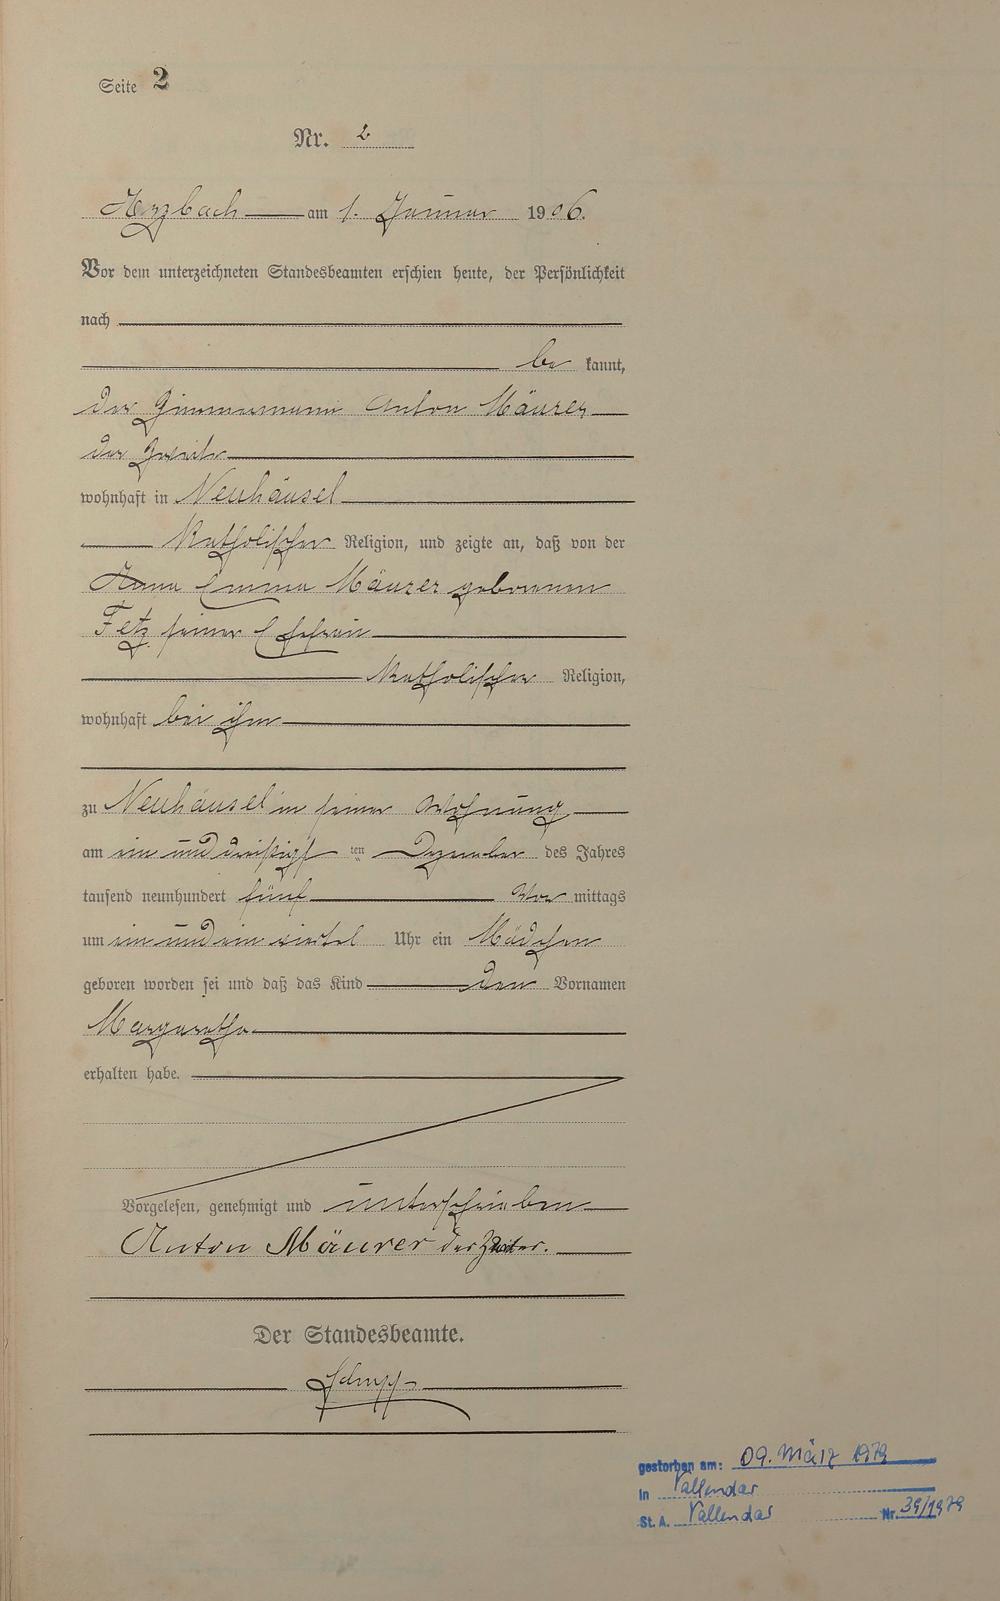 Seite 2
Nr. 2
Arzbach am 1. Januar 1906.
Vor dem unterzeichneten Standesbeamten erschien heute, der Persönlichkeit
nach
be kannt,
der Zimmermann Anton Mäurer
der Zweite
wohnhaft in Neuhäusel
katholischer Religion, und zeigte an, daß von der
Anna Emma Mäurer geborenen
Fetz seiner Ehefrau
katholischer Religion,
wohnhaft bei ihm
zu Neuhäusel in seiner Wohnung
am ein und dreißigst ten Dezember des Jahres
tausend neunhundert fünf Vor mittags
um ein und ein viertel Uhr ein Mädchen
geboren worden sei und daß das Kind den Vornamen
Margaretha
erhalten habe.
Vorgelesen, genehmigt und unterschrieben
Anton Mäurer der Zweiter.
Der Standesbeamte.
Schupp
gestorben am: 09. März 1979
in Vallendar
St. A. Vallendar Nr. 39/1979